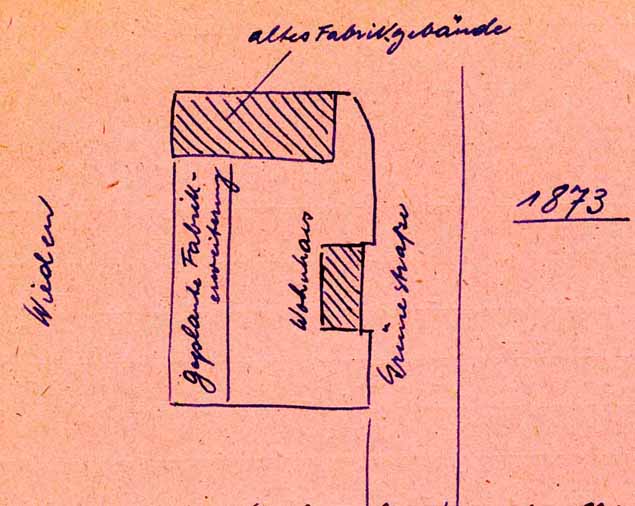 altes Fabrikgebände
1873
Wieden
geplante Fabrik-
erweiterung
Wohnhaus
Grüne straße